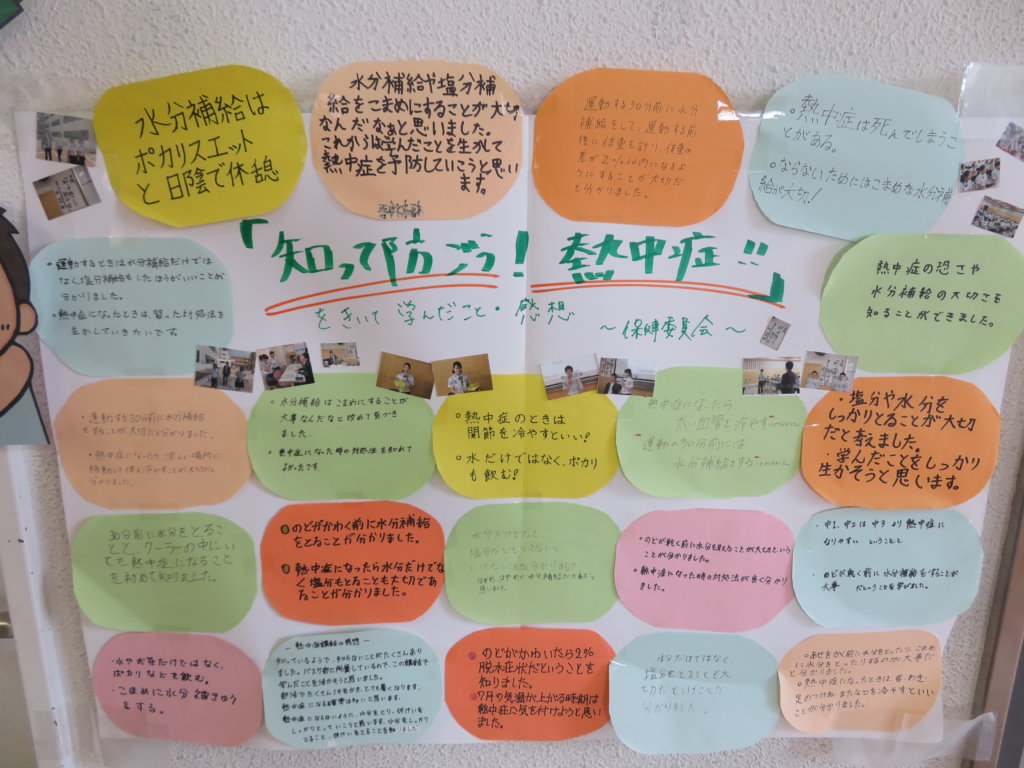 水分補給は
ポカリスエット
と日陰で休憩
水分補給や塩分補
給をこまめにすることが大切
なんだなぁと思いました。
これからは学んだことを生かして
熱中症を予防していこうと思い
ます。
運動する30分前に水分
補給をして、運動する前
後に体重を計り、体重の
差が2%以内になるよ
うにすることが大切だ
と分かりました。
・熱中症は死んでしまうこ
とがある。
・ならないためにはこまめな水分補
給が大切!
「知って防ごう!熱中症!!」
をきいて学んだこと・感想
〜保健委員会〜
・運動するときは水分補給だけでは
なく、塩分補給をしたほうがいいことが
分かりました。
・熱中症になったときは、習った対処法を
生かしていきたいです。
熱中症の恐さや
水分補給の大切さを
知ることができました。
・運動する30分前に水分補給
をすることが大切だと分かりました。
・熱中症になったら涼しい場所に
移動して体を冷やすことが大切だと
分かりました。
・水分補給はこまめにすることが
大事なんだなと改めて気づき
ました。
・熱中症になった時の対処法を知れて
よかったです。
・熱中症のときは
関節を冷やすといい!
・水だけではなく、ポカリ
も飲む!
熱中症になったら
太い血管を冷やす
運動の30分前には
水分補給をする
・塩分や水分を
しっかりとることが大切
だと考えました。
・学んだことをしっかり
生かそうと思います。
30分前に水分をとるこ
とと、クーラーの中にい
ても熱中症になること
を初めて知りました。
・のどがかわく前に水分補給
をとることが分かりました。
・熱中症になったら水分だけでな
く塩分もとることも大切であ
ることが分かりました。
水分だけでなく、
塩分などもとらないと
いけないことが分かりました
・のどが乾く前に水分を取ることが大切だという
ことが分かりました。
・熱中症になった時の対処法が良く分かり
ました。
・中1、中2は中3より熱中症に
なりやすいということと
・のどが乾く前に水分補給をすることが
大事だということを学びました。
・水やお茶だけではなく、
ポカリなども飲む。
・こまめに水分補きゅう
をする。
ー熱中症講話の感想ー
知っているようで、知らないことがたくさんあり
ました。バスケ部に所属しているので、この講話で
学んだことを活かそうと思いました。
・のどがかわいたら2%
脱水症状だということを
知りました。
・7月の気温が上がる時期は
熱中症に気を付けようと思い
ました。
水分だけではなく、
塩分をとることも大
切だということが
分かりました。
・あせをかく前に水分をとったり、こまめ
に水分をとったりするのが大事だ
と分かりました。
・熱中症になったときは、首・わき・
足のつけね・またなどを冷やすといい
ことが分かりました。